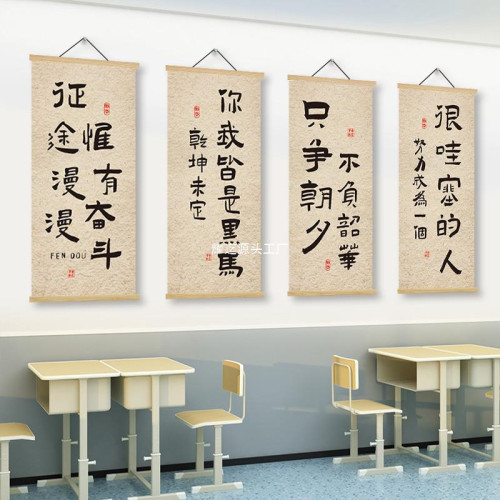 征途漫漫
惟有奋斗
FEN DOU
乾坤未定
你我皆是黑馬
只争朝夕
不負韶華
努力成為一個
很哇塞的人
源头工厂